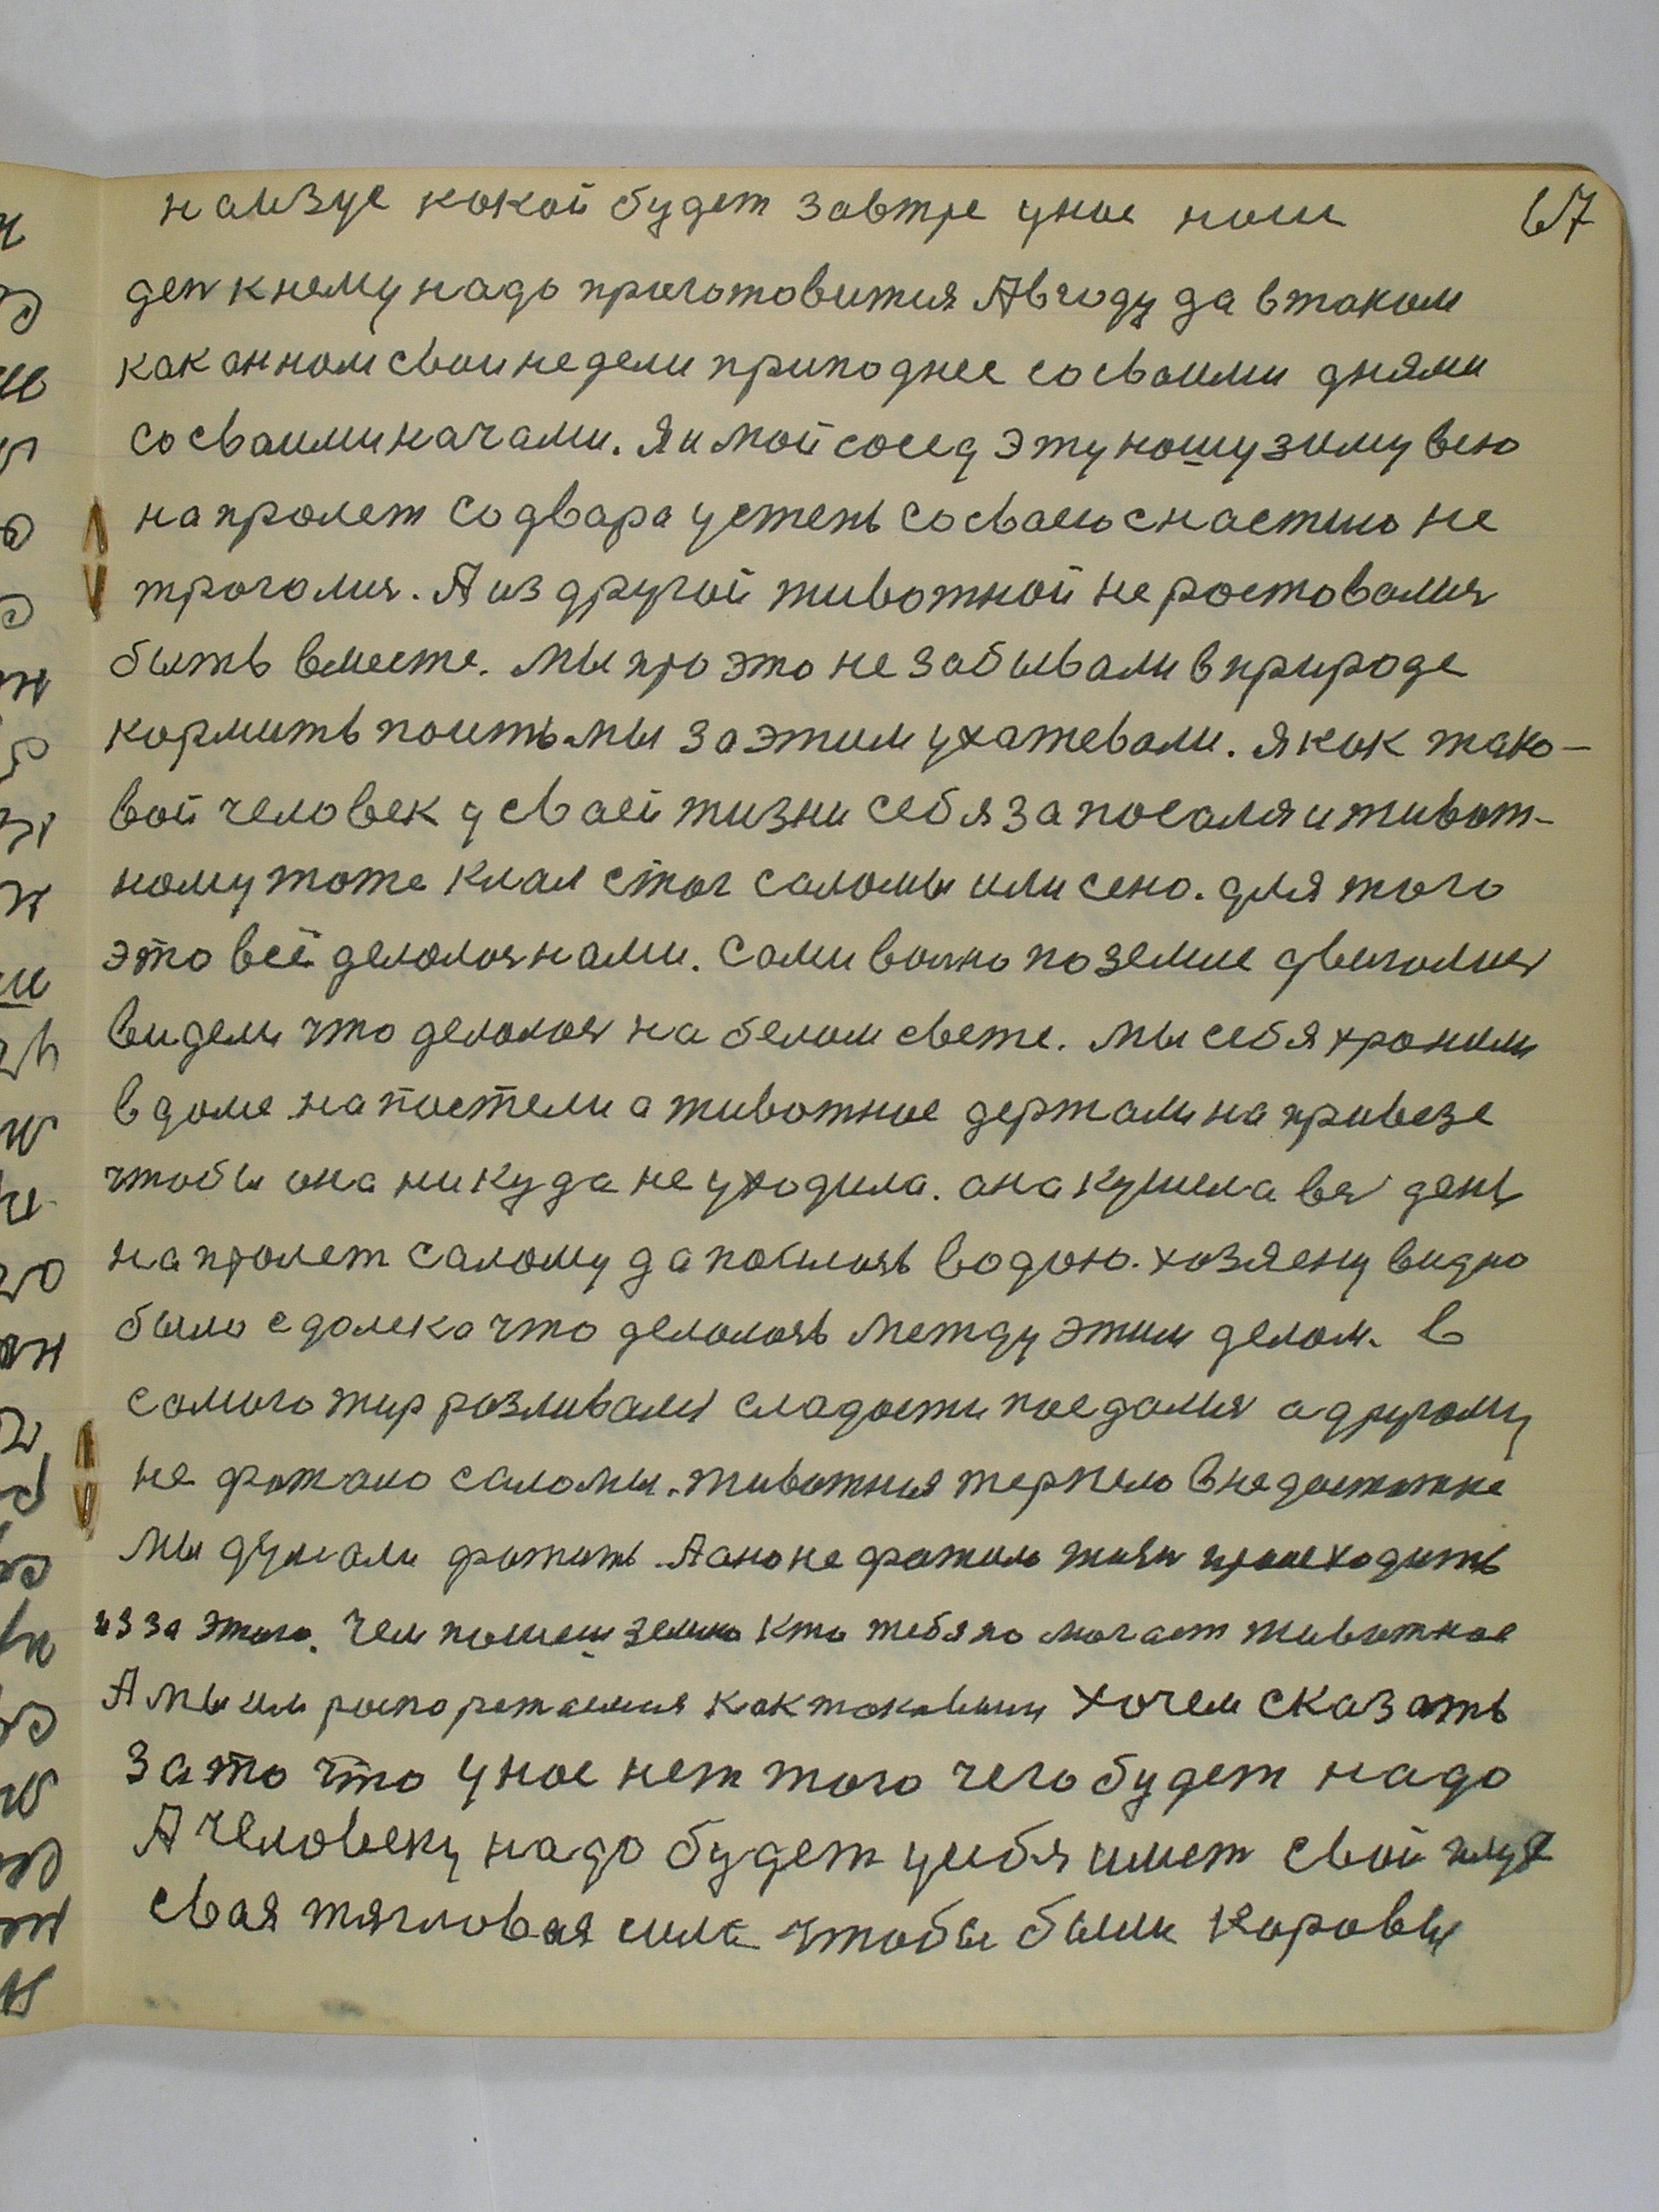 какой будет завтре унас наш 67
ден кнему надо приготовится Авгоду да втаком
как онном свои недели приподнее сосваими днями
сосваиминачами. Яимой сосед этунашузиму всю
напролет содвара устепь сосваею снастию не
трогалися. Аиз другой животной не ростовалися
быть вместе. мы про это не забывали вприроде
кормить поить мы заэтим ухажевали. я как тако-
вой человек усваей жизни себя запосаля иживот-
ному тоже клал стог саломы или сено. для того
это всё делолося нами. сами волно поземле двигалися
видели что делолося на белом свете. мы себя хронили
вдоме напостели а животное держали на привезе
чтобы она никуда не уходила. она кушила вся день
напролет салому да водою. хозяену видно
было сдолека что делолось между этим делом. в
самого жир розливался сладости поедалися адругому
не фатало саломы. животная терпело внедостатке
мы думали фатить. Аано не фатило происходить
изза этого. чем землю кто тебя помогает животное
Амы им как таковыми хочем сказать
зато что унас нет того чего будет надо
Ачеловеку надо будет усебя имет свой
свая тягловая сила чтобы были коровы